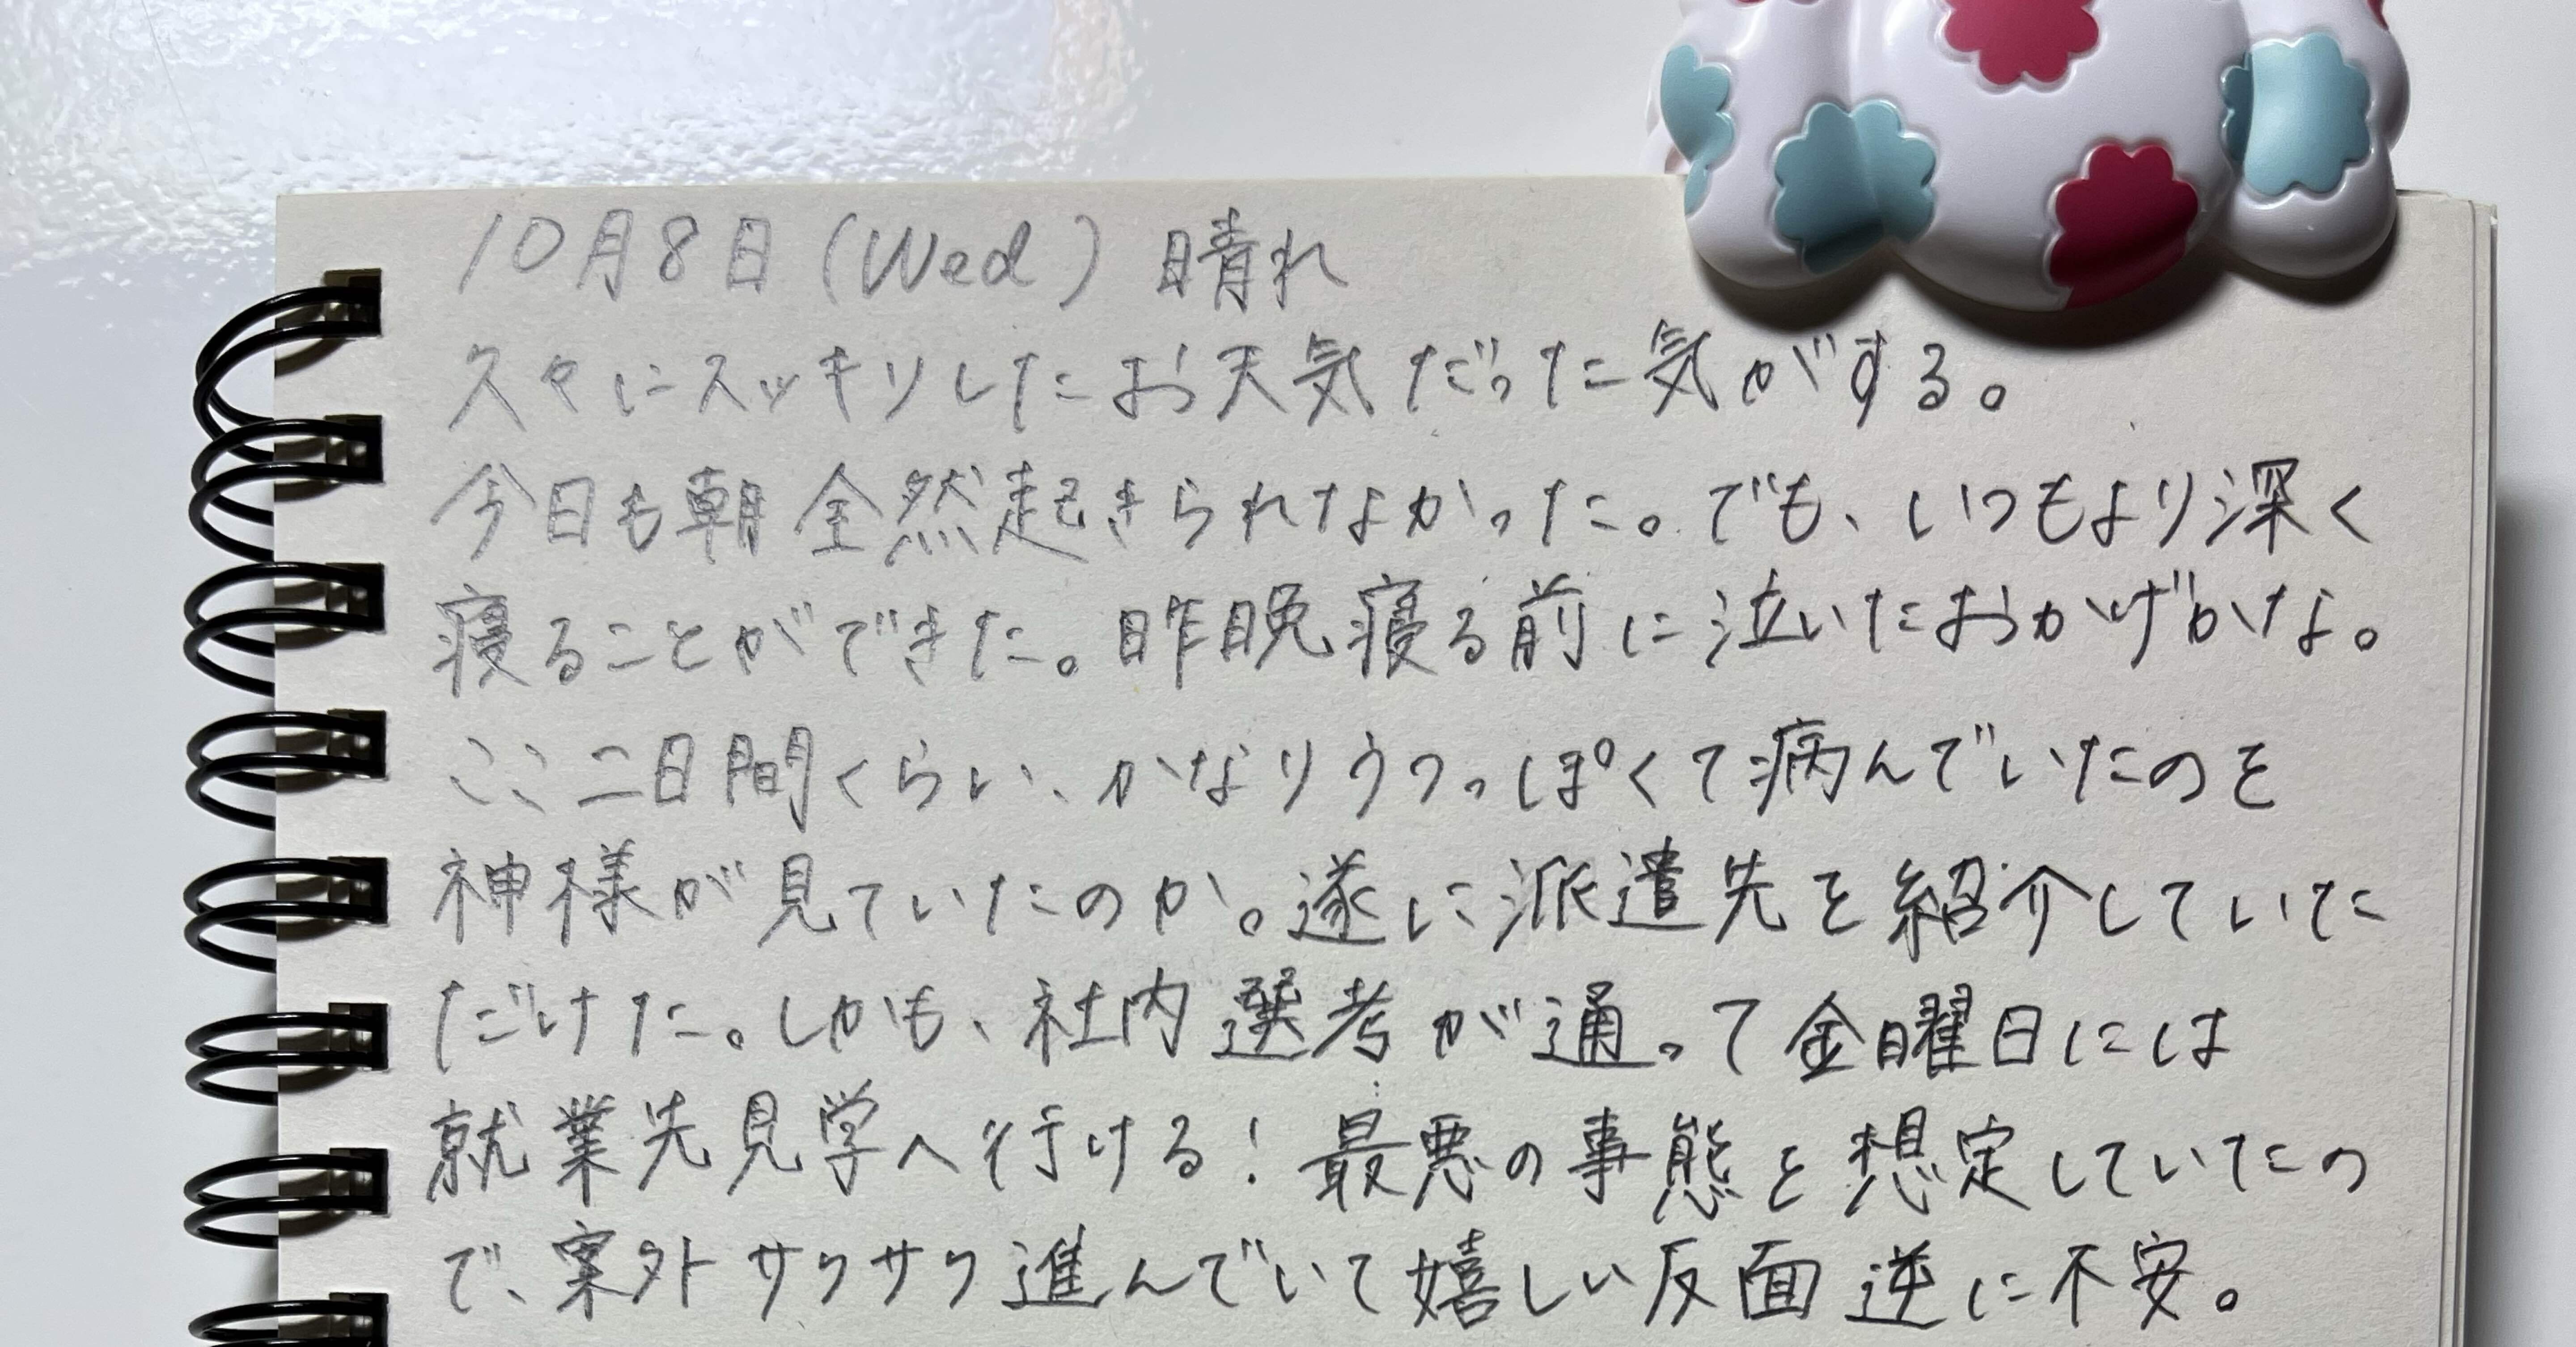 10月8日(Wed) 晴れ
久々にスッキリしたお天気だった気がする。
今日も朝全然起きられなかった。でも、いつもより深く
寝ることができた。昨晩寝る前に泣いたおかげかな。
ここ二日間くらい、かなりうつっぽくて病んでいたのを
神様が見ていたのか。遂に派遣先を紹介していた
だけた。しかも、社内選考が通って金曜日には
就業先見学へ行ける!最悪の事態を想定していたの
で、案外サクサク進んでいて嬉しい反面逆に不安。